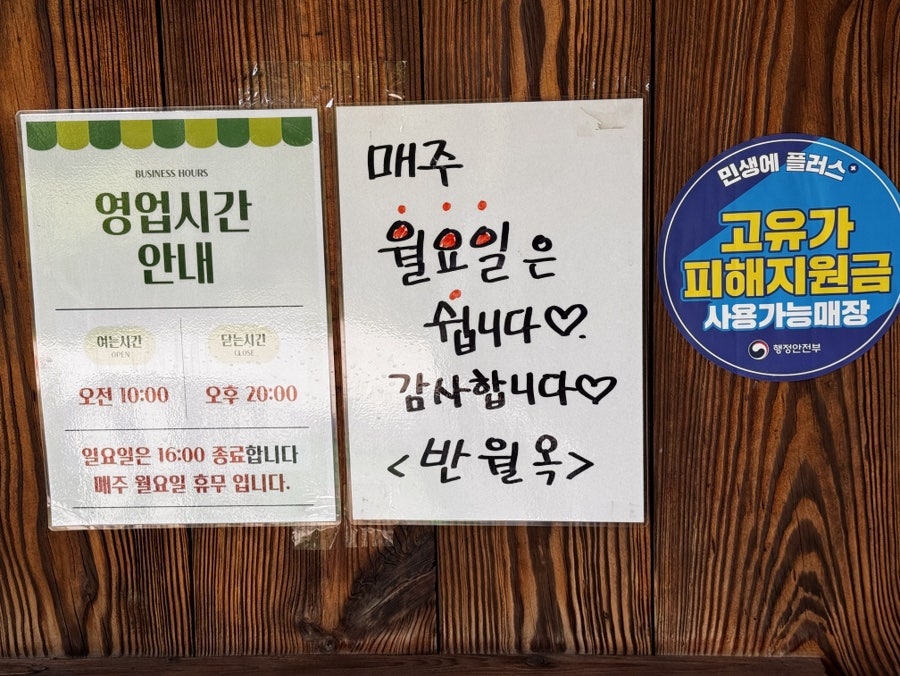 BUSINESS HOURS
영업시간
안내
여는시간
OPEN
닫는시간
CLOSE
오전 10:00
오후 20:00
일요일은 16:00 종료합니다
매주 월요일 휴무 입니다.
매주
월요일은
쉽니다♡.
감사합니다♡
<반월옥>
민생에 플러스+
고유가
피해지원금
사용가능매장
행정안전부